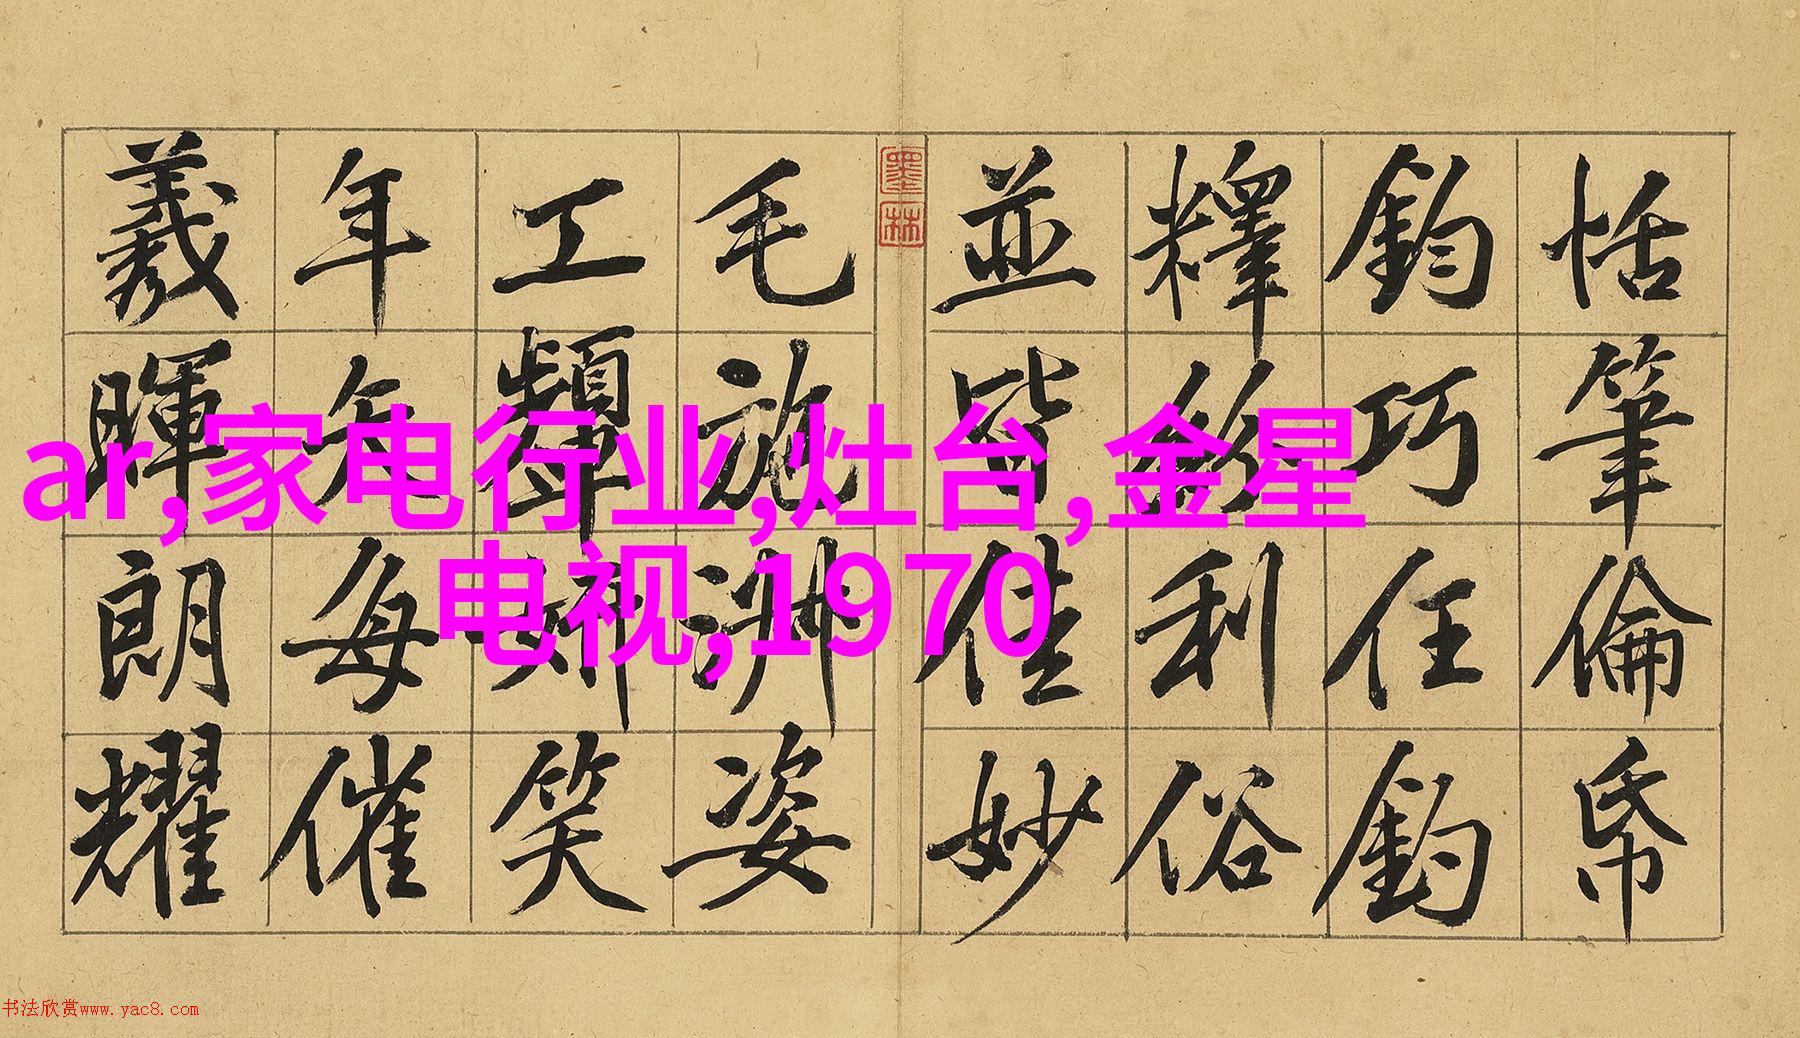 恬筆倫帋
鈞巧任鈞
釋紛利俗
並皆佳妙
毛施淑姿
工顰妍笑
年矢每催
羲暉朗耀
墨林
ar,家电行业,灶台,金星
电视,1970
书法欣赏www.yac8.com